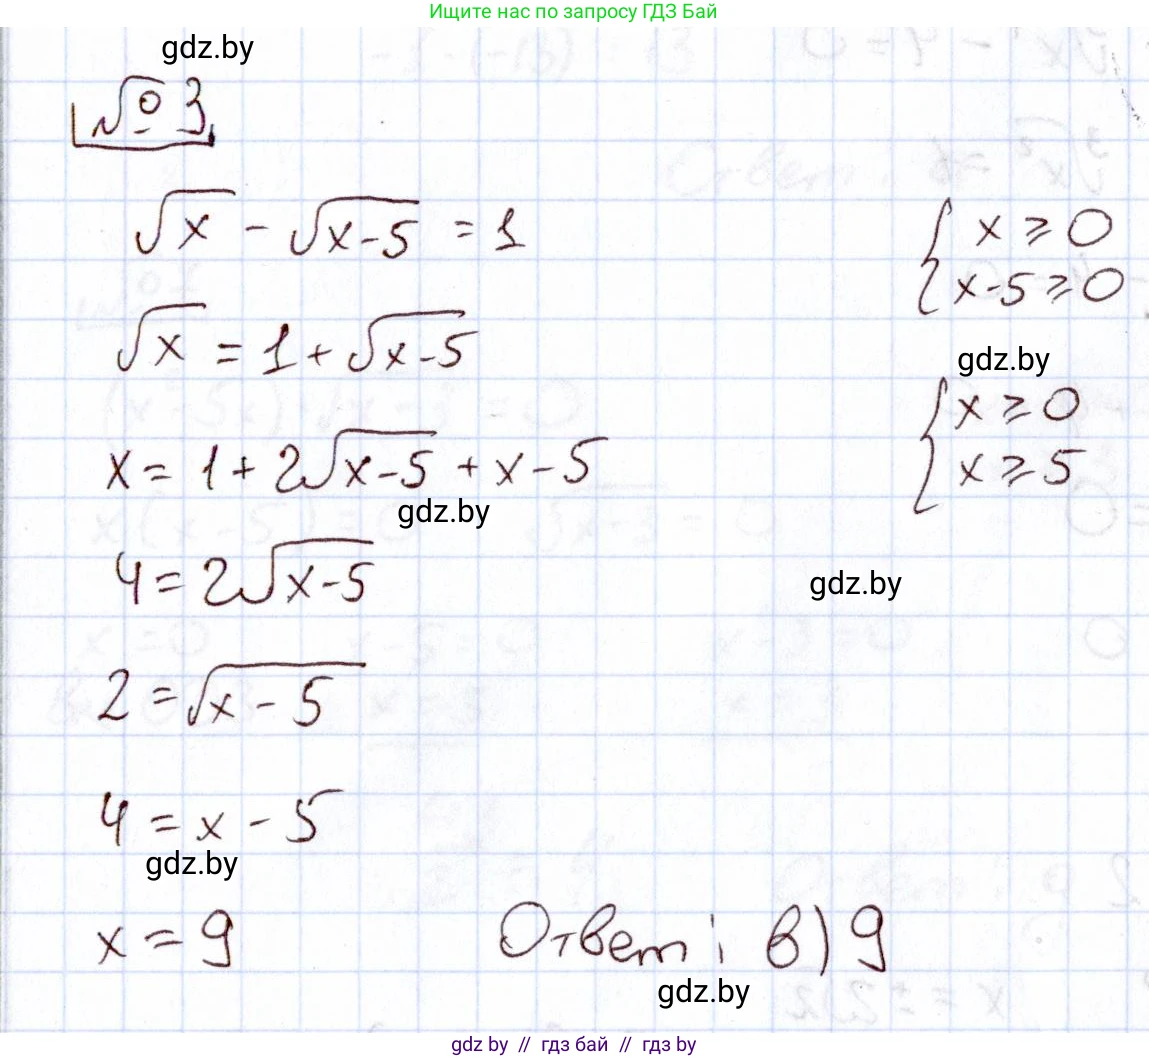 Ищите нас по запросу ГДЗ Бай
gdz.by
№ 3
√x - √(x-5) = 1
{ x ≥ 0
x-5 ≥ 0
√x = 1 + √(x-5)
gdz.by
{ x ≥ 0
x ≥ 5
x = 1 + 2√(x-5) + x - 5
gdz.by
4 = 2√(x-5)
gdz.by
2 = √(x - 5)
4 = x - 5
gdz.by
x = 9
Ответ: в) 9
gdz.by
gdz by // гдз бай // гдз by